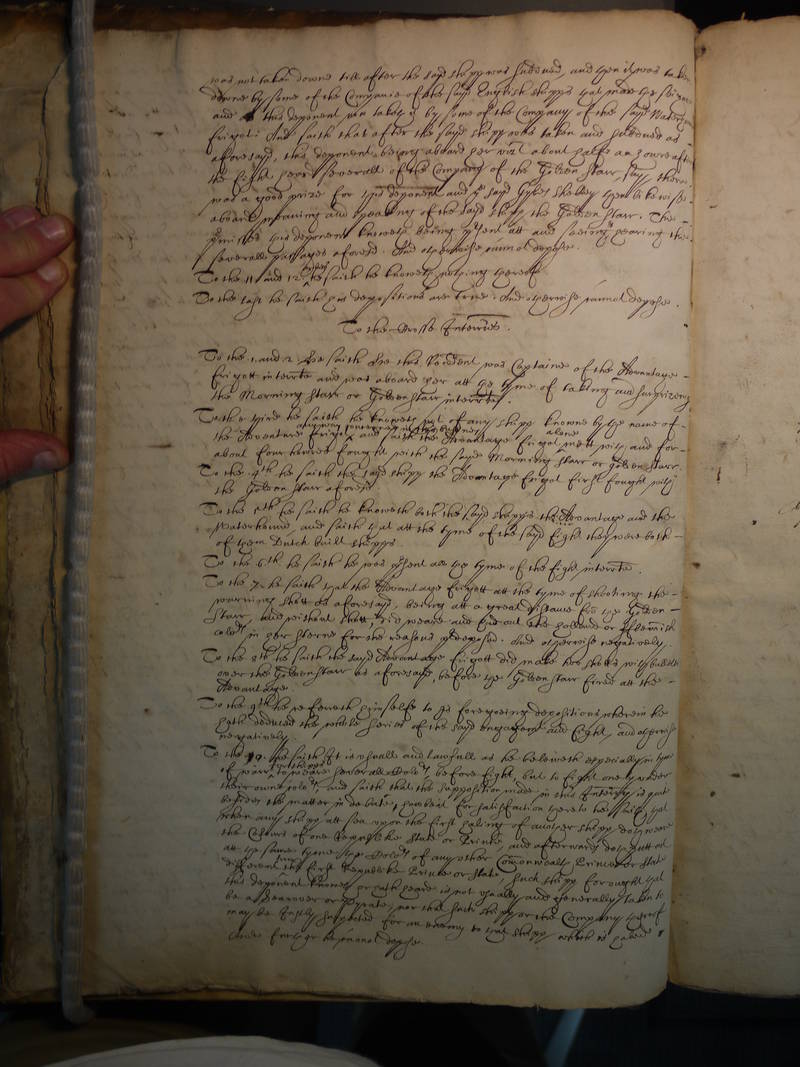 was not taken downe till after the sayd shipp was subdued, and then it was taken
downe by some of the Companie of the sayd English shipps that made the seizure
and this deponent taken by some of the Company of the sayd Waterhound
friggot: And saith that after the sayd shipp was taken and subdued as
aforesayd, this deponent being aboard her vizt about halfe an howre after
the fight heard severall of the Company of the Golden Starr say there
was a good prize for this deponent and the sayd then likewise
aboard meaning and speaking of the sayd shipp the Golden Starr. The
premisses this deponent knoweth being present att and seeing & hearing the
severall passages aforesd. And otherwise cannot depose.
To the 11 and 12 he saith he knoweth nothing thereof
To the last he saith his depositions are true. And otherwise cannot depose.
To the Crosse Interries.
To the 1. and 2. hee saith hee this Rendent was Captaine of the Advantage
friggott interrte and was aboard her att the tyme of taking and surprizing
the Morning Starr or Golden Starr interrte.
To the third he saith he knoweth not of any shipp knowne by the name of
the Adventure friggot and saith the Advantage frigot alone mett with and for
about four houres fought with the sayd Morning Starr or Golden Starr
To the 4th he saith the sayd shipp the Advantage frigot first fought with
the Golden Starr aforesd
To the 5th he saith he knoweth both the sayd shipps the Advantage and the
Waterhound, and saith that att the tyme of the sayd fight they were both
of them Dutch built shipps.
To the 6th he saith he was present att the tyme of the fight interrte.
To the 7. he saith that the Advantage friggott att the tyme of shooting the
warning shott as aforesayd, being att a great distance from the Golden
Starr, did without shott, weare and put out the Holland or Flemish
colors in her sterne for the reasons predeposed. And otherwise negatively.
To the 8th he saith the sayd Advantage friggott did make two shotts with bulletts
over the Golden Starr as aforesayd, before the Golden Starr fired att the
Advantage.
To the 9th he referreth himselfe to his foregoeing depositions wherein he
hath deduced the whole series of the sayd engagemt and fight, and otherwise
negatively.
To the 10. he saith It is usuall and lawfull as he beleiveth especially in tyme
of warr for shipps to weare severall Colors before fight, but to fight onely under
their owne colors, and saith that the supposition made in this Interry is put
besides the matter in debate, howbeit for satisfaction thereto he saith that
when any shipp att sea upon the first haling of another shipp doth weare
the Colours of one Republike State or Prince, and afterward doth putt out
att the same tyme the Colors of any other Commonwealth Prince or State
different from the first Republike Prince or State, such shipp for ought that
this deponent knoweth or hath heard is not usually and generally taken to
be a Searover or Pyrate, nor that such shipp or the Company thereof
may be justly suspected for an enemy to that shipp which is haled
And further he cannot depose.